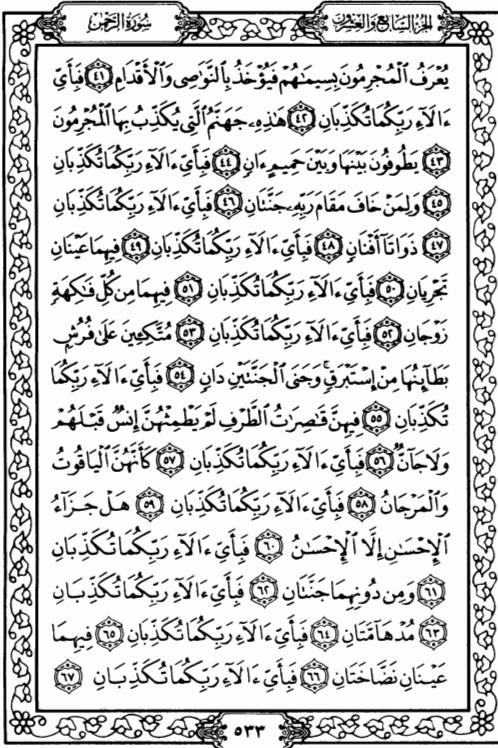 الجزء السابع والعشرون
سورة الرحمن
يُعْرَفُ ٱلْمُجْرِمُونَ بِسِيمَٰهُمْ فَيُؤْخَذُ بِٱلنَّوَٰصِى وَٱلْأَقْدَامِ ٤١ فَبِأَىِّ
ءَالَآءِ رَبِّكُمَا تُكَذِّبَانِ ٤٢ هَٰذِهِۦ جَهَنَّمُ ٱلَّتِى يُكَذِّبُ بِهَا ٱلْمُجْرِمُونَ
٤٣ يَطُوفُونَ بَيْنَهَا وَبَيْنَ حَمِيمٍ ءَانٍ ٤٤ فَبِأَىِّ ءَالَآءِ رَبِّكُمَا تُكَذِّبَانِ
٤٥ وَلِمَنْ خَافَ مَقَامَ رَبِّهِۦ جَنَّتَانِ ٤٦ فَبِأَىِّ ءَالَآءِ رَبِّكُمَا تُكَذِّبَانِ
٤٧ ذَوَاتَآ أَفْنَانٍ ٤٨ فَبِأَىِّ ءَالَآءِ رَبِّكُمَا تُكَذِّبَانِ ٤٩ فِيهِمَا عَيْنَانِ
تَجْرِيَانِ ٥٠ فَبِأَىِّ ءَالَآءِ رَبِّكُمَا تُكَذِّبَانِ ٥١ فِيهِمَا مِن كُلِّ فَٰكِهَةٍ
زَوْجَانِ ٥٢ فَبِأَىِّ ءَالَآءِ رَبِّكُمَا تُكَذِّبَانِ ٥٣ مُتَّكِـِٔينَ عَلَىٰ فُرُشٍۭ
بَطَآئِنُهَا مِنْ إِسْتَبْرَقٍ ۚ وَجَنَى ٱلْجَنَّتَيْنِ دَانٍ ٥٤ فَبِأَىِّ ءَالَآءِ رَبِّكُمَا
تُكَذِّبَانِ ٥٥ فِيهِنَّ قَٰصِرَٰتُ ٱلطَّرْفِ لَمْ يَطْمِثْهُنَّ إِنسٌ قَبْلَهُمْ
وَلَا جَآنٌّ ٥٦ فَبِأَىِّ ءَالَآءِ رَبِّكُمَا تُكَذِّبَانِ ٥٧ كَأَنَّهُنَّ ٱلْيَاقُوتُ
وَٱلْمَرْجَانُ ٥٨ فَبِأَىِّ ءَالَآءِ رَبِّكُمَا تُكَذِّبَانِ ٥٩ هَلْ جَزَآءُ
ٱلْإِحْسَٰنِ إِلَّا ٱلْإِحْسَٰنُ ٦٠ فَبِأَىِّ ءَالَآءِ رَبِّكُمَا تُكَذِّبَانِ
٦١ وَمِن دُونِهِمَا جَنَّتَانِ ٦٢ فَبِأَىِّ ءَالَآءِ رَبِّكُمَا تُكَذِّبَانِ
٦٣ مُدْهَآمَّتَانِ ٦٤ فَبِأَىِّ ءَالَآءِ رَبِّكُمَا تُكَذِّبَانِ ٦٥ فِيهِمَا
عَيْنَانِ نَضَّاخَتَانِ ٦٦ فَبِأَىِّ ءَالَآءِ رَبِّكُمَا تُكَذِّبَانِ ٦٧
٥٣٣